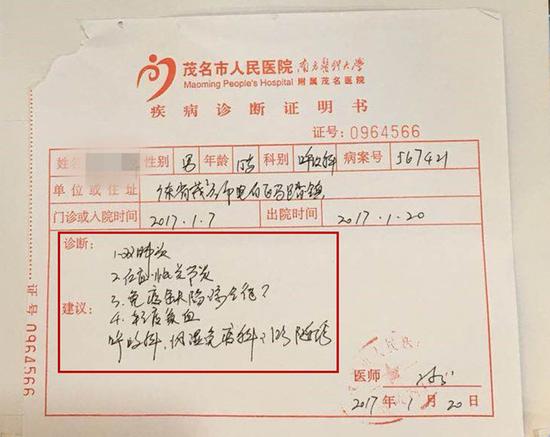 茂名市人民医院 南方医科大学
Maoming People's Hospital 附属茂名医院
疾病诊断证明书
证号:0964566
姓名 性别 男 年龄 科别 呼吸科 病案号 567421
单位或住址 广东省茂名市电白区马踏镇
门诊或入院时间 2017.1.7 出院时间 2017.1.20
诊断:
1.双肺炎
2.右面
3.免疫缺陷综合征?
4.轻度贫血
建议:
呼吸科、风湿免疫科门诊随诊
医师
2017年1月20日
证号0964566